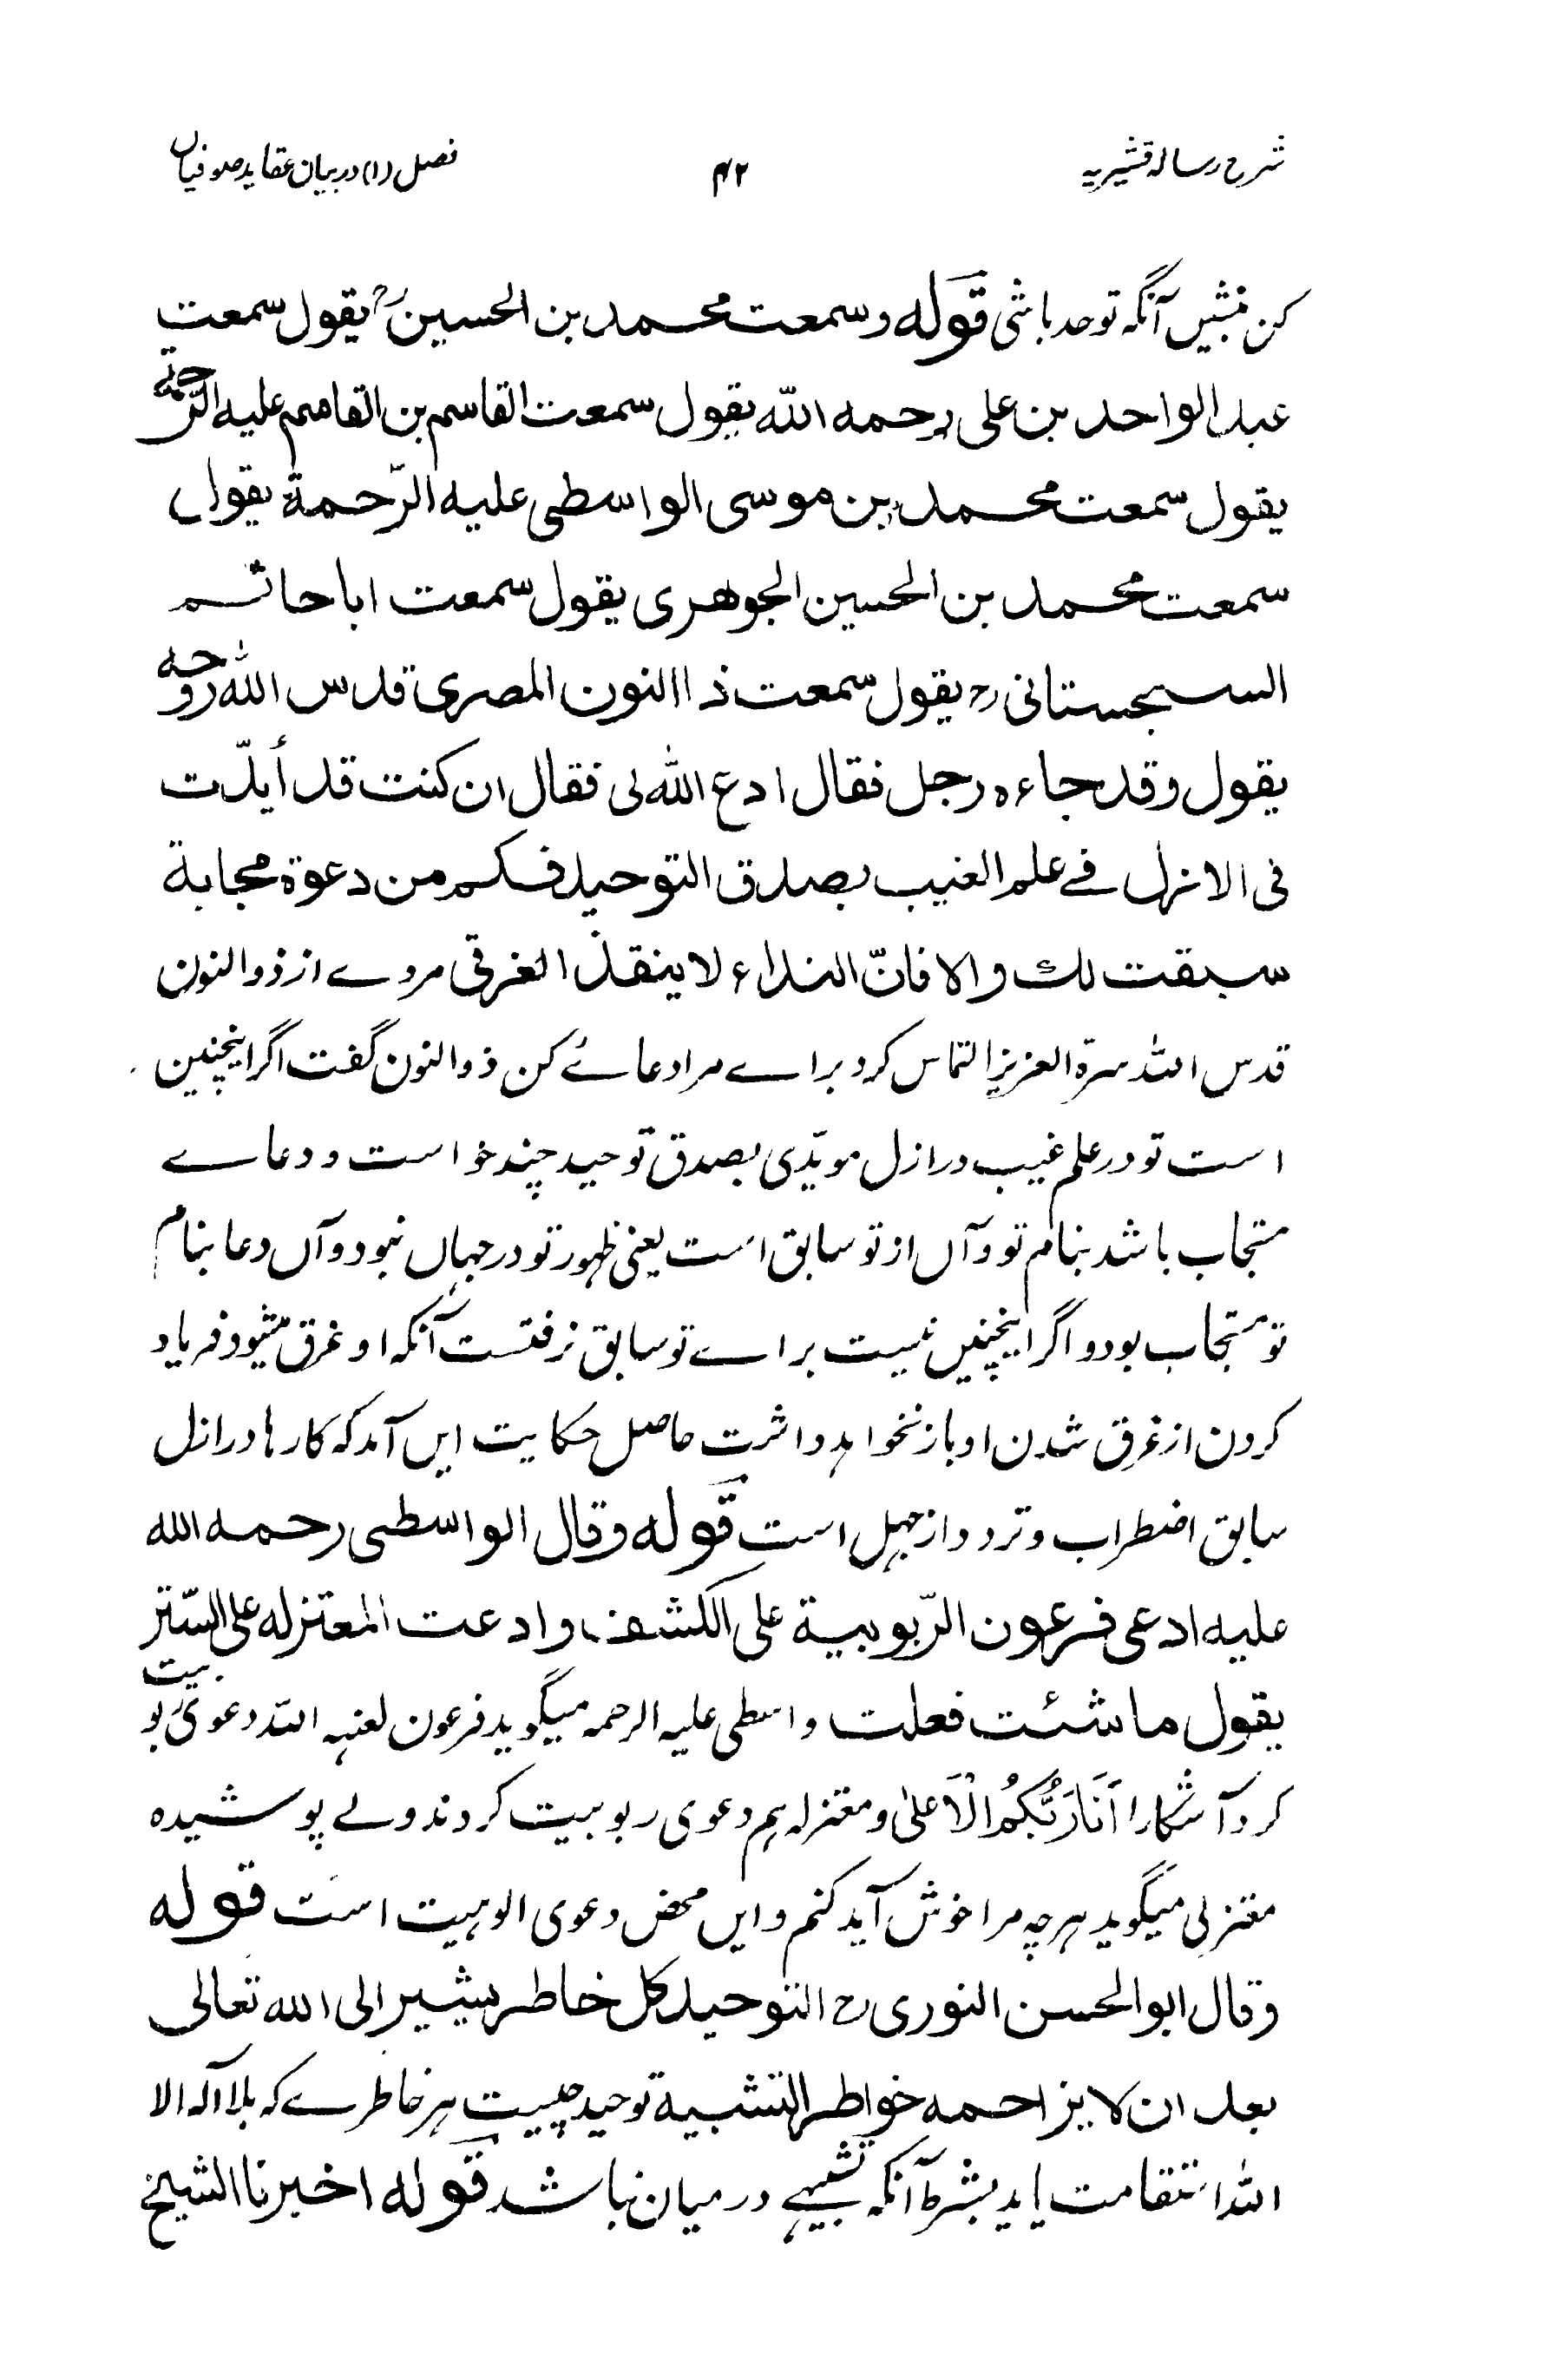 شرح رسالہ قشیریہ
۴۲
فصل (۱) در بیان عقاید صوفیاں
کن نبشیں آنگہ توحد باشی قوله وسمعت محمد بن الحسينؒ يقول سمعت
عبد الواحد بن على رحمه الله يقول سمعت القاسم بن القاسم عليه الرّحمة
يقول سمعت محمد بن موسى الواسطى عليه الرّحمة يقول
سمعت محمد بن الحسين الجوهرى يقول سمعت اباحاتم
السجستانى رح يقول سمعت ذاالنون المصرى قدس الله روحه
يقول وقد جاءه رجل فقال ادع الله لى فقال ان كنت قد أيدّت
فى الازل فے علم الغيب بصدق التوحيد فكم من دعوة مجابة
سبقت لك والا فانّ النداء لا ينقذ الغرقى مردے از ذوالنون
قدس اللہ سرہ العزیز التماس کرد براے مرا دعاے کن ذوالنون گفت اگر اینچنین
است تو در علم غیب در ازل مویّدی بصدق توحید چند خواست و دعاے
مستجاب باشد بنام تو و آں از تو سابق است یعنی ظہور تو در جہاں نبود و آں دعا بنام
تو مستجاب بود و اگر اینچنیں نیست براے تو سابق نرفتست آنکہ او غرق میشود فریاد
کردن از غرق شدن او باز نخواہد داشت حاصل حکایت ایں آمد کہ کارہا در ازل
سابق اضطراب و تردد از جہل است قوله وقال الواسطى رحمه الله
عليه ادعى فرعون الرّبوبية على الكشف وادعت المعتزله على السّتر
يقول ما شئت فعلت واسطی علیہ الرحمہ میگوید فرعون لعنہ اللہ دعوئ ربوبیت
کرد آشکارا اَنَا رَبُّکُمُ الْاَعلیٰ و معتزلہ ہم دعوی ربوبیت کردند ولے پوشیدہ
معتزلی میگوید ہرچہ مرا خوش آید کنم و ایں محض دعوی الوہیت است قوله
وقال ابوالحسن النورى رح التوحيد كل خاطر يشير الى الله تعالى
بعد ان لا يزاحمه خواطر التشبية توحید چیست ہر خاطرے کہ بلا آلہ الا
اللہ استقامت یابد بشرط آنکہ تشبیہے درمیان نباشد قوله اخبرنا الشيخ